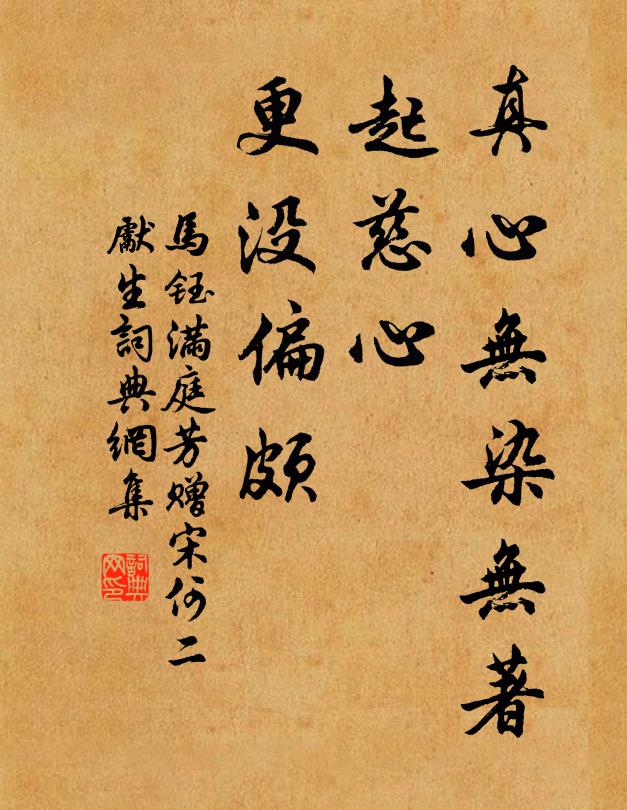 真心無染無著
起慈心
更没偏頗
馬鈺满庭芳赠宋何二
獻生詞典網集
詞典
网印